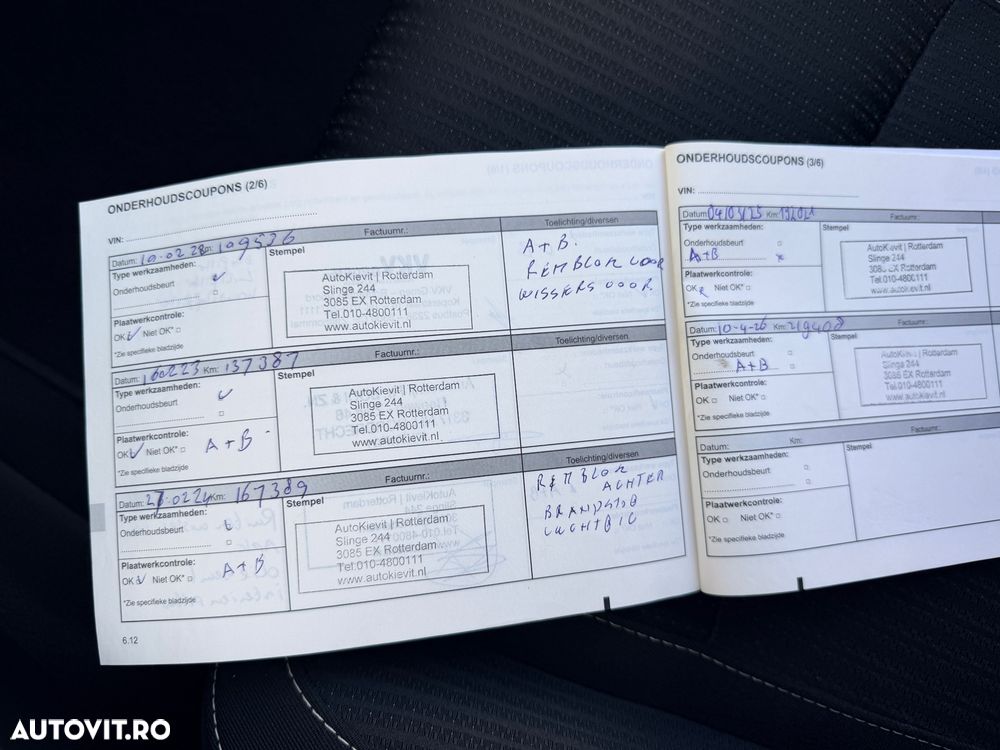 ONDERHOUDSCOUPONS (2/6)
VIN:
Datum: 10.02.22 Km: 109536 Factuurnr.: Toelichting/diversen
Type werkzaamheden:
Onderhoudsbeurt
Plaatwerkcontrole:
OK Niet OK*
*Zie specifieke bladzijde
Stempel
AutoKievit | Rotterdam
Slinge 244
3085 EX Rotterdam
Tel.010-4800111
www.autokievit.nl
A + B.
REMBLOK VOOR
WISSERS VOOR.
Datum: 160223 Km: 137387 Factuurnr.: Toelichting/diversen
Type werkzaamheden:
Onderhoudsbeurt
Plaatwerkcontrole:
OK Niet OK* A + B
*Zie specifieke bladzijde
Stempel
AutoKievit | Rotterdam
Slinge 244
3085 EX Rotterdam
Tel.010-4800111
www.autokievit.nl
Datum: 0224 Km: 167389 Factuurnr.: Toelichting/diversen
Type werkzaamheden:
Onderhoudsbeurt
Plaatwerkcontrole:
OK Niet OK* A + B
*Zie specifieke bladzijde
Stempel
AutoKievit | Rotterdam
Slinge 244
3085 EX Rotterdam
Tel.010-4800111
www.autokievit.nl
REMBLOK
ACHTER
6.12
ONDERHOUDSCOUPONS (3/6)
VIN:
Datum: 04/03/25 Km: 192021 Factuurnr.:
Type werkzaamheden:
Onderhoudsbeurt
A+B
Plaatwerkcontrole:
OK Niet OK*
*Zie specifieke bladzijde
Stempel
AutoKievit | Rotterdam
Slinge 244
3085 EX Rotterdam
Tel.010-4800111
www.autokievit.nl
Datum: 10-4-26 Km: 219408 Factuurnr.:
Type werkzaamheden:
Onderhoudsbeurt
A+B
Plaatwerkcontrole:
OK Niet OK*
*Zie specifieke bladzijde
Stempel
AutoKievit | Rotterdam
Slinge 244
3085 EX Rotterdam
Tel.010-4800111
www.autokievit.nl
Datum: Km: Factuurnr.:
Type werkzaamheden:
Onderhoudsbeurt
Plaatwerkcontrole:
OK Niet OK*
*Zie specifieke bladzijde
Stempel
AUTOVIT.RO